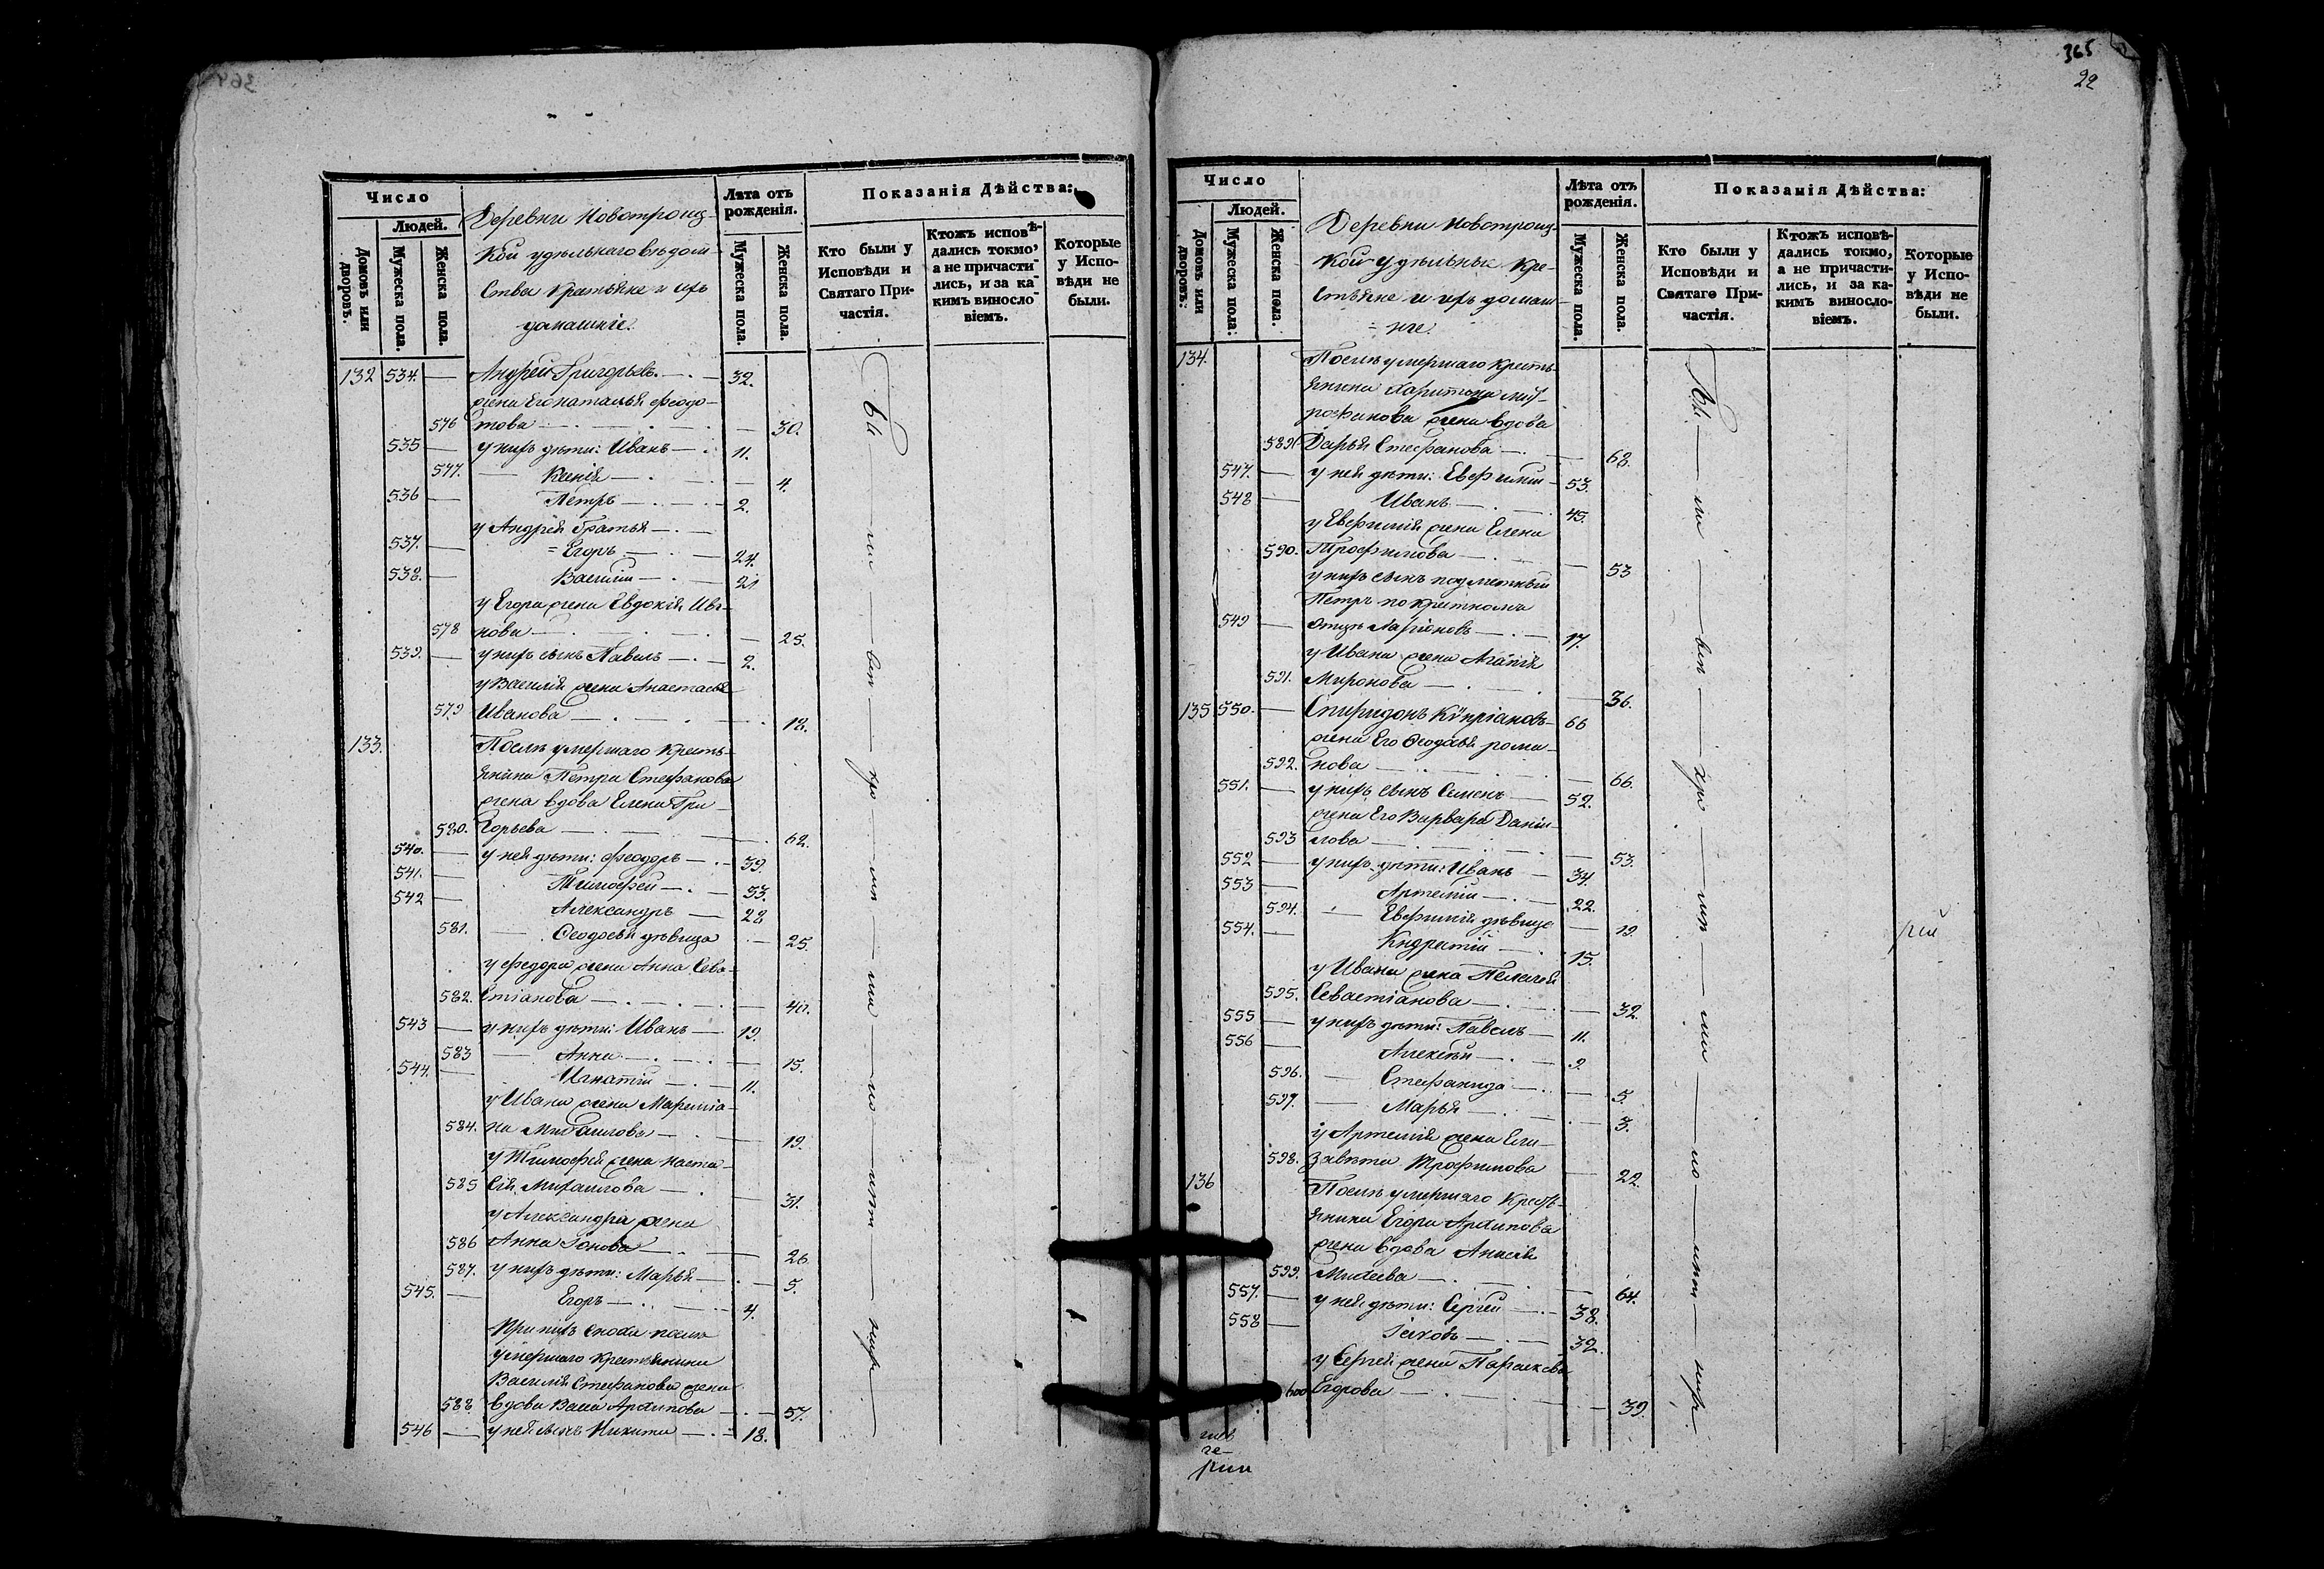 365
22
Число
Людей.
Домовъ или дворовъ.
Мужеска пола.
Женска пола.
Деревни Новотроиц-
кой удѣльнаго вѣдом-
ства крестьяне и ихъ
домашніе.
Лѣта отъ рожденія.
Мужеска пола.
Женска пола.
Показанія Дѣйства:
Кто были у Исповѣди и Святаго При-частія.
Ктожъ исповѣ-дались токмо, а не причасти-лись, и за ка-кимъ виносло-віемъ.
Которые у Испо-вѣди не были.
132 534. — Андрей Григорьевъ — 32.
жена Его Наталья Феодо-
576 това — 30.
535 — у нихъ дѣти: Иванъ — 11.
577. — Ксенія — 4.
536 — Петръ — 2.
у Андрея братья —
537. — = Егоръ — 24.
538. — Василій — 21
у Егора жена Евдокія Ива-
578 нова — 25.
539. — у нихъ сынъ Павелъ — 2.
у Василія жена Анастасья
579 Иванова — 18.
133. Послѣ умершаго кресть-
янина Петра Стефанова
жена вдова Елена Гри-
580. горьева — 62.
540. — у ней дѣти: Феодоръ — 39.
541. — Тимофей — 33.
542 — Александръ — 28
581. — Феодосья дѣвица — 25.
у Федора жена Анна Сева-
582. стіанова — 40.
543 — у нихъ дѣти: Иванъ — 19.
583 — Анна — 15.
544. — Игнатій — 11.
у Ивана жена Мареміа-
584. на Михаилова — 19.
у Тимофея жена Наста-
585 сія Михаилова — 31.
у Александра жена
586 Анна Іонова — 26
587. у нихъ дѣти: Марья — 5.
545. — Егоръ — 4.
При нихъ сноха послѣ
умершаго крестьянина
Василія Стефанова жена
588. вдова Васса Архипова — 57.
546 — у ней сынъ Никита — 18.
Число
Людей.
Домовъ или дворовъ:
Мужеска пола:
Женска пола.
Деревни Новотроиц-
кой удѣльные кре-
стьяне и ихъ домаш-
= ніе.
Лѣта отъ рожденія.
Мужеска пола.
Женска пола.
Показанія Дѣйства:
Кто были у Исповѣди и Святаго При-частія.
Ктожъ исповѣ-дались токмо, а не причасти-лись, и за ка-кимъ виносло-віемъ.
Которые у Испо-вѣди не были.
134. Послѣ умершаго кресть-
янина Харитона Мит-
рофанова жена вдова
589 Дарья Стефанова — 68.
547. — у ней дѣти: Евфимій — 53.
548 — Иванъ — 45.
у Евфимія жена Елена
590. Трофимова — 53
у нихъ сынъ подметный
Петръ по крестному
549 — отцу Ларіоновъ — 17.
у Ивана жена Агапія
591. Миронова — 36.
135 550. — Спиридонъ Купріановъ — 66
жена Его Феодосья Рома-
592. нова — 66.
551. — у нихъ сынъ Семенъ — 52.
жена Его Варвара Даніи-
593 лова — 53.
552 — у нихъ дѣти: Иванъ — 34.
553 — Артемій — 22.
594. — Евфимія дѣвица — 19.
554. — Кндратій — 15.
у Ивана жена Пелагея
595. Севастіанова — 32.
555 — у нихъ дѣти: Павелъ — 11.
556 — Алексѣй — 9
596. — Стефанида — 5.
597. — Марья — 3.
у Артемія жена Ели-
598. завета Трофимова — 22.
136 Послѣ умершаго кресть-
янина Егора Архипова
жена вдова Анисія
599. Михеева — 64.
557. — у ней дѣти: Сергей — 38.
558 — Іаковъ — 32.
у Сергея жена Параскева
600 Егорова — 39.